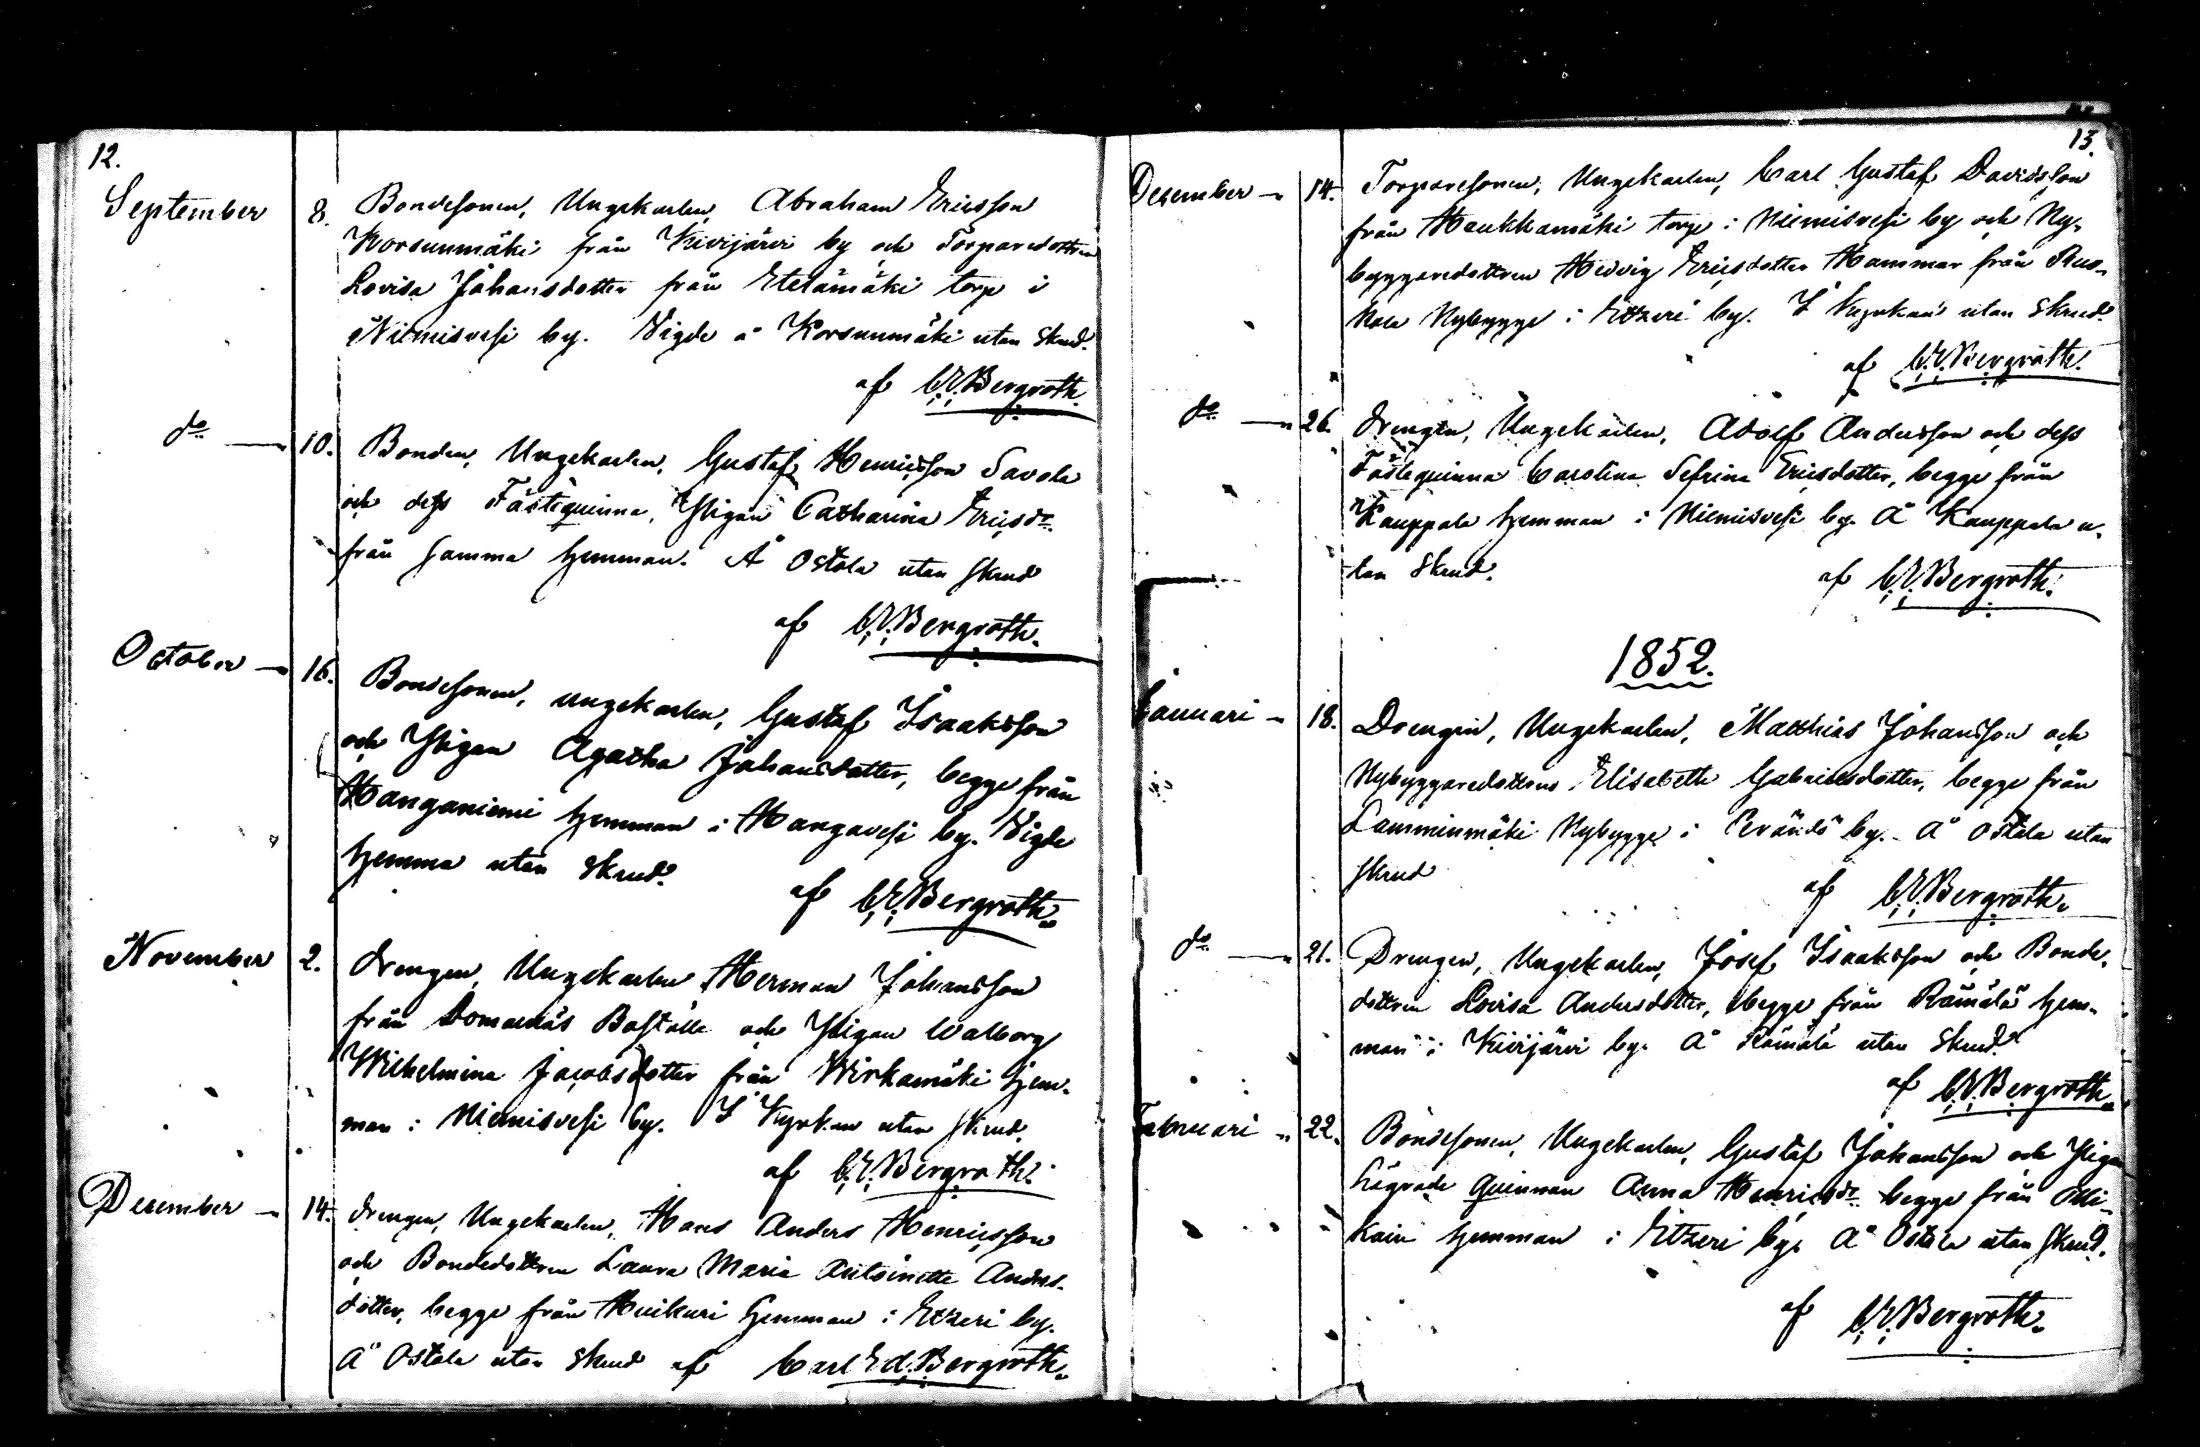 12.
September 8. Bondesonen, Ungekarlen, Abraham Ericsson
Korsunmäki från Kivijärvi by och Torparedottren
Lovisa Johansdotter från Etelämäki torp i
Niemisvesi by. Vigde å Korsunmäki utan skrud.
af C.E. Bergroth.
do 10. Bonden, Ungekarlen, Gustaf Henricsson Savola
och dess Fästeqvinna, Pigan Catharina Ericsdr
från samma hemman. Å Ostola utan skrud
af C.E. Bergroth.
October 16. Bondesonen, ungekarlen, Gustaf Isaaksson
och Pigan Agatha Johansdotter, begge från
Hanganiemi hemman i Hangavesi by. Vigde
hemma utan skrud.
af C.E. Bergroth.
November 2. Drengen, Ungekarlen Herman Johansson
från Domarnäs Boställe och Pigan Walborg
Wilhelmina Jacobsdotter från Wirkamäki hem-
man i Niemisvesi by. I Kyrkan utan skrud.
af C.E. Bergroth.
December 14. Drengen, Ungekarlen, Hans Anders Henricsson
och Bondedottren Laura Maria Antoinette Anders-
dotter, begge från Huikuri hemman i Etzeri by.
Å Ostola utan skrud af Carl Ed. Bergroth.
13.
December 14. Torparesonen, Ungekarlen, Carl Gustaf Davidsson
från Haukkamäki torp i Niemisvesi by och Ny-
byggaredottren Hedvig Ericsdotter Hammar från
Nybygge i Etzeri by. I Kyrkan utan skrud.
af C.E. Bergroth.
do 26. Drengen, Ungekarlen, Adolf Andersson och dess
Fästeqvinna Carolina Sefrina Ericsdotter, begge från
Kauppala hemman i Niemisvesi by. Å Kauppala u-
tan skrud.
af C.E. Bergroth.
1852.
Januari 18. Drengen, Ungekarlen, Matthias Johansson och
Nybyggaredottren Elisabeth Gabrielsdotter, begge från
Lamminmäki Nybygge i Peränds by. Å Ostola utan
skrud
af C.E. Bergroth.
do 21. Drengen, Ungekarlen, Josef Isaaksson och Bonde-
dottren Lovisa Andersdotter, begge från Rämälä hem-
man i Kivijärvi by. Å Rämälä utan skrud.
af C.E. Bergroth.
Februari 22. Bondesonen, Ungekarlen, Gustaf Johansson och Pigan
Lägrade Qvinnan Anna Henricsdr begge från Olli-
kain hemman i Etzeri by. Å Ostola utan skrud.
af C.E. Bergroth.